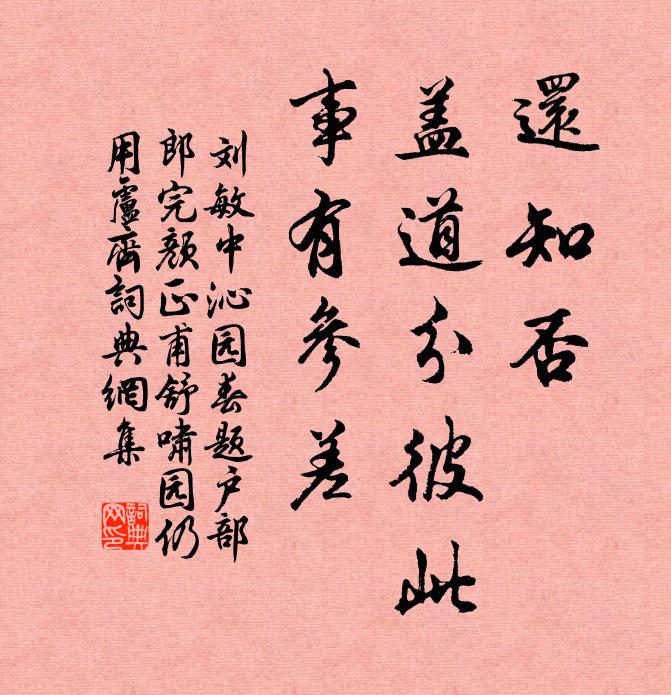 還知否
盖道分彼此
事有參差
刘敏中沁园春题户部
郎完颜正甫舒啸园仍
用廬齋詞典網集
詞典網印